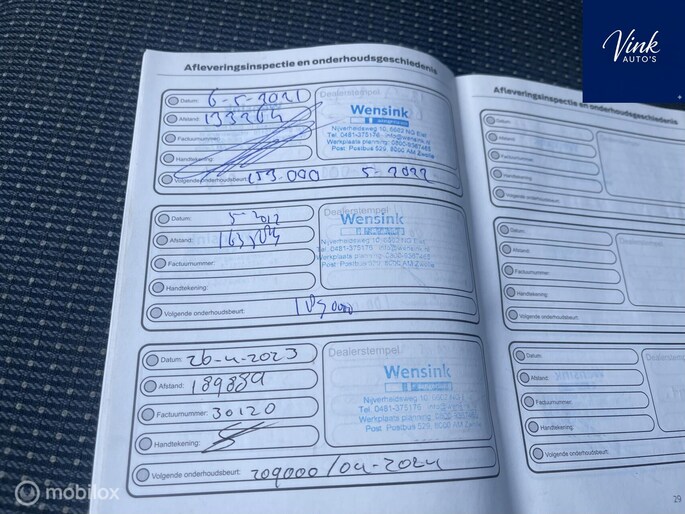 Vink
AUTO'S
Afleveringsinspectie en onderhoudsgeschiedenis
Datum: 6-5-2021
Afstand: 133264
Factuurnummer:
Handtekening:
Volgende onderhoudsbeurt: 153.000 5-2022
Dealerstempel
Wensink
Nijverheidsweg 10, 6662 NG Elst
Tel. 0481-375176 info@wensink.nl
Werkplaats planning: 0800-9367465
Post: Postbus 529, 8000 AM Zwolle
Datum: 5-2022
Afstand:
Factuurnummer:
Handtekening:
Volgende onderhoudsbeurt:
Dealerstempel
Wensink
Nijverheidsweg 10, 6662 NG Elst
Tel. 0481-375176 info@wensink.nl
Werkplaats planning: 0800-9367465
Post: Postbus 529, 8000 AM Zwolle
Datum: 26-4-2023
Afstand: 189889
Factuurnummer: 30120
Handtekening:
Volgende onderhoudsbeurt: 209000/04-2024
Dealerstempel
Wensink
Nijverheidsweg 10, 6662 NG Elst
Tel. 0481-375176 info@wensink.nl
Werkplaats planning
Post: Postbus 529, 8000 AM Zwolle
Afleveringsinspectie en onderhoudsgeschiedenis
Datum:
Afstand:
Factuurnummer:
Handtekening:
Volgende onderhoudsbeurt:
Datum:
Afstand:
Factuurnummer:
Handtekening:
Volgende onderhoudsbeurt:
Datum:
Afstand:
Factuurnummer:
Handtekening:
Volgende onderhoudsbeurt:
Dealerstempel
29
mobilox